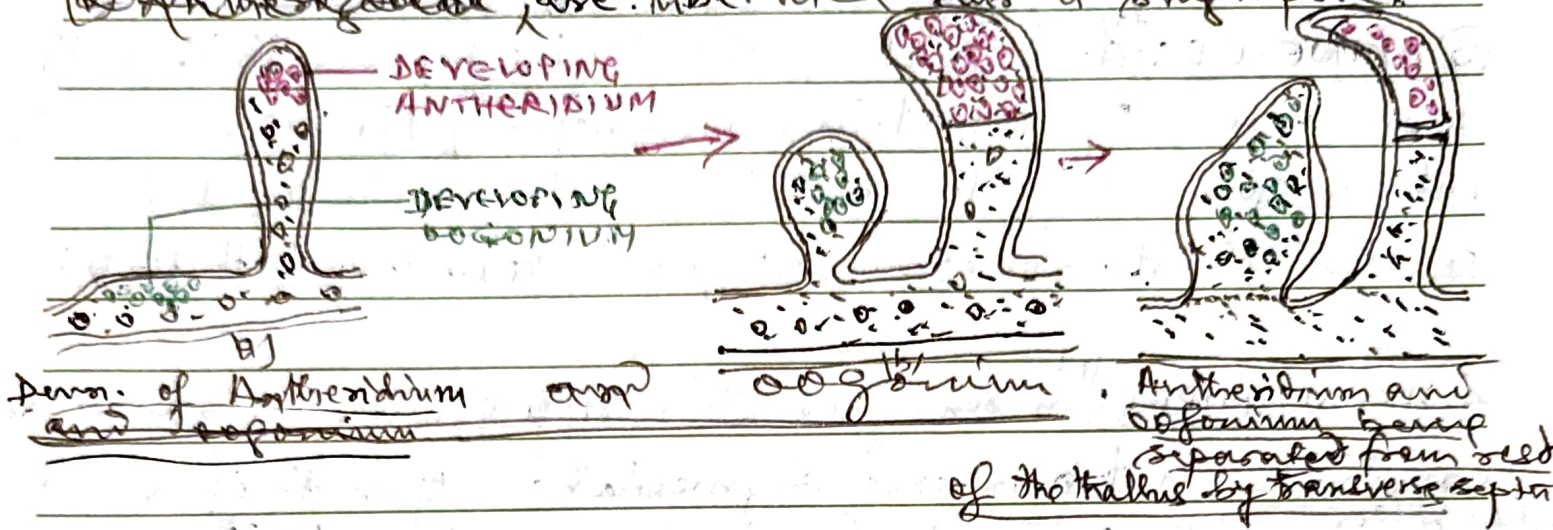 DEVELOPING
ANTHERIDIUM
DEVELOPING
OOGONIUM
a)
b)
Devn. of Antheridium and oogonium.
and oogonium
Antheridium and
oogonium being
separated from rest
of the thallus by transverse septa